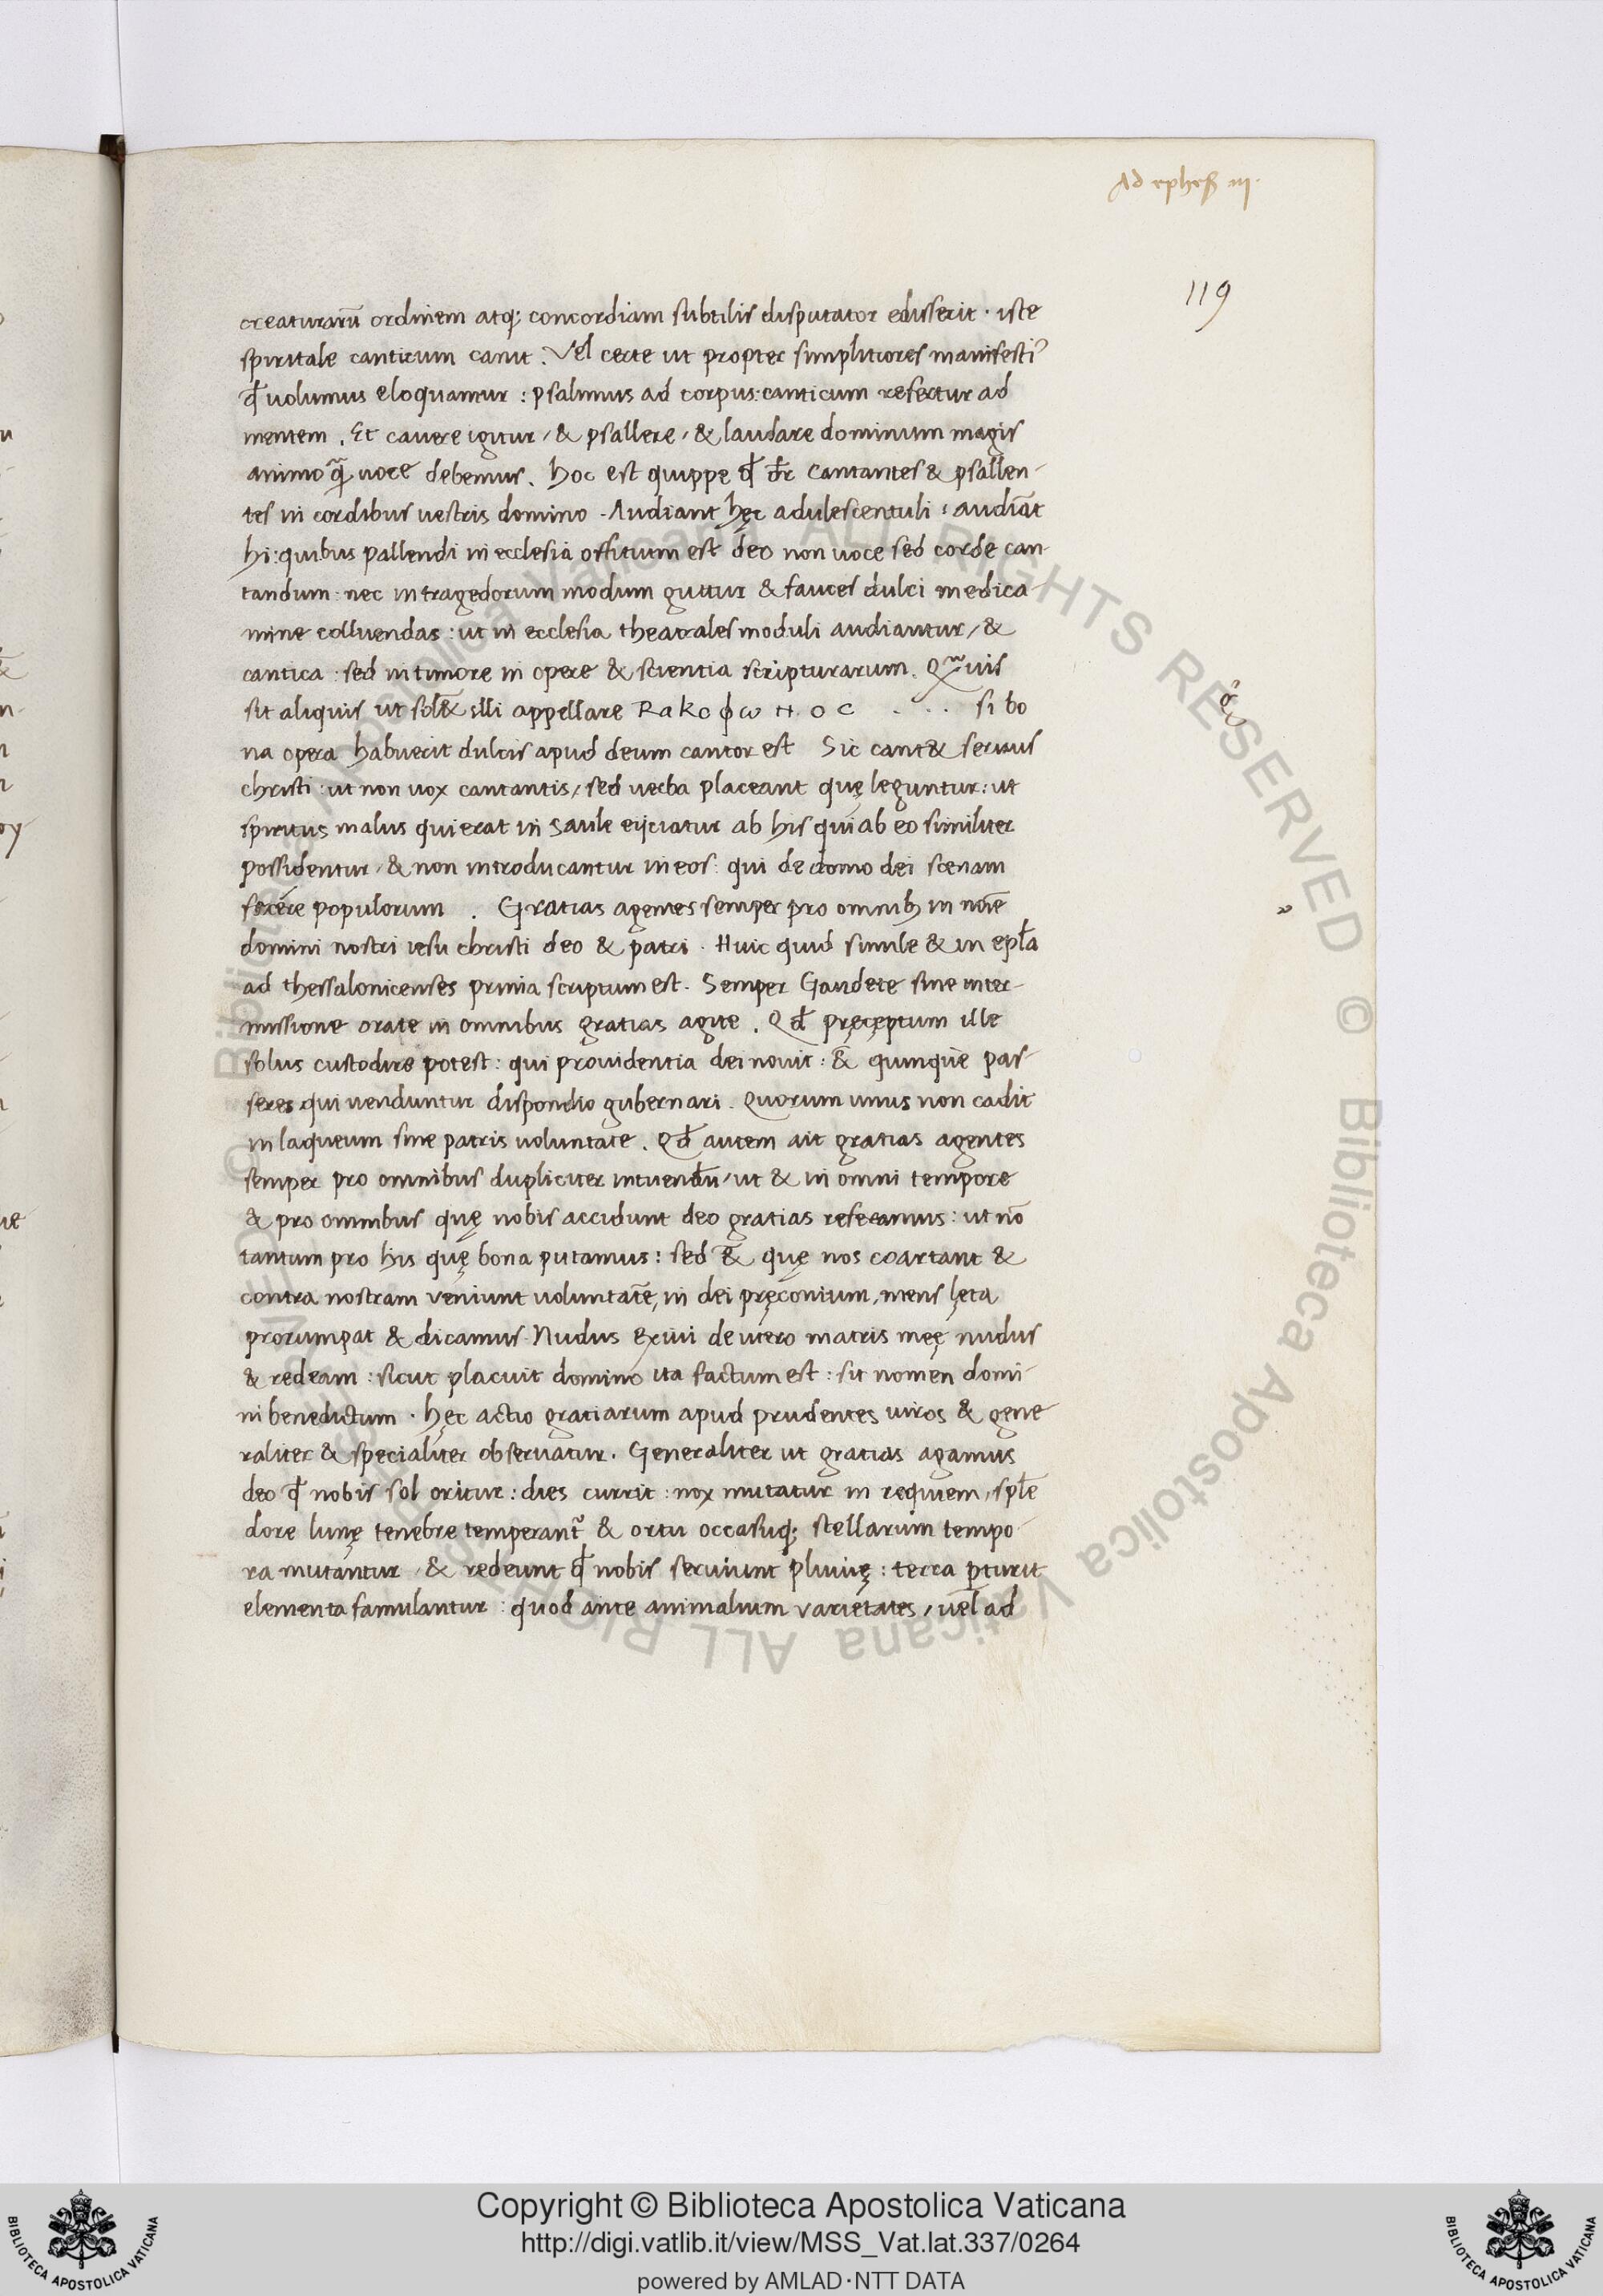 Ad ephes iij.
119
creaturarū ordinem atq; concordiam subtilis disputator edisserit · iste
spiritale canticum canit . Vel certe ut propter simplitiores manifesti᾽
qđ uolumus eloquamur : psalmus ad corpus: canticum refertur ad
mentem . Et cavere igitur / & psallere / & laudare dominum magis
animo q̄ uoce debemus . hoc est quippe qđ dr̄ Cantantes & psallen-
tes in cordibus uestris domino . Audiant hęc adulescentuli : audiāt
hi: quibus pallendi in ecclesia offitium est deo non uoce sed corde can-
tandum : nec in tragedorum modum guttur & fauces dulci medica-
mine colluendas : ut in ecclesia theatrales moduli audiantur / &
cantica : sed in timore in opere & scientia scripturarum . Qᷓuis
sit aliquis ut sol&̄ illi appellare Rakoφωн.oc . . . si bo
na opera habuerit dulcis apud deum cantor est Sic cant& seruus
christi : ut non uox cantantis / sed uerba placeant quę leguntur : ut
spiritus malus qui erat in Saule eijciatur ab his qui ab eo similiter
possidentur / & non introducantur in eos : qui de domo dei scenam
fecére populorum . Gratias agentes semper pro omnib; in noīe
domini nostri iesu christi deo & patri . Huic quid simile & in epła
ad thessalonicenses prima scriptum est . Semper Gaudete sine inter-
missione orate in omnibus gratias agite . Qđ pręcęptum ille
solus custodire potest : qui prouidentia dei nouit : &̄ quinque pas-
seres qui uenduntur dispondio gubernari . Quorum unus non cadit
in laqueum sine patris uoluntate . Qđ autem ait gratias agentes
semper pro omnibus dupliciter intuendū / ut & in omni tempore
& pro omnibus quę nobis accidunt deo gratias referamus : ut nō
tantum pro his quę bona putamus : sed &̄ quę nos coartant &
contra nostram veniunt uoluntatē, in dei pręconium, mens lęta
prorumpat & dicamus Nudus exiui de utero matris meę nudus
& redeam : sicut placuit domino ita factum est : sit nomen domi-
ni benedictum . hęc actio gratiarum apud prudentes uiros & gene
raliter & specialiter obseruatur . Generaliter ut gratias agamus
deo qđ nobis sol oritur : dies currit : nox mutatur in requiem / splē
dore lunę tenebre temperant᷑ & ortu occasuq; stellarum tempo
ra mutantur / & redeunt qđ nobis seruiunt pluuię : terra ꝑturit
elementa famulantur : quod ante animalium varietates / uel ad
Copyright © Biblioteca Apostolica Vaticana
http://digi.vatlib.it/view/MSS_Vat.lat.337/0264
powered by AMLAD·NTT DATA
BIBLIOTECA APOSTOLICA VATICANA
BIBLIOTECA APOSTOLICA VATICANA
© Biblioteca Apostolica Vaticana ALL RIGHTS RESERVED © Biblioteca Apostolica Vaticana ALL RIGHTS RESERVED